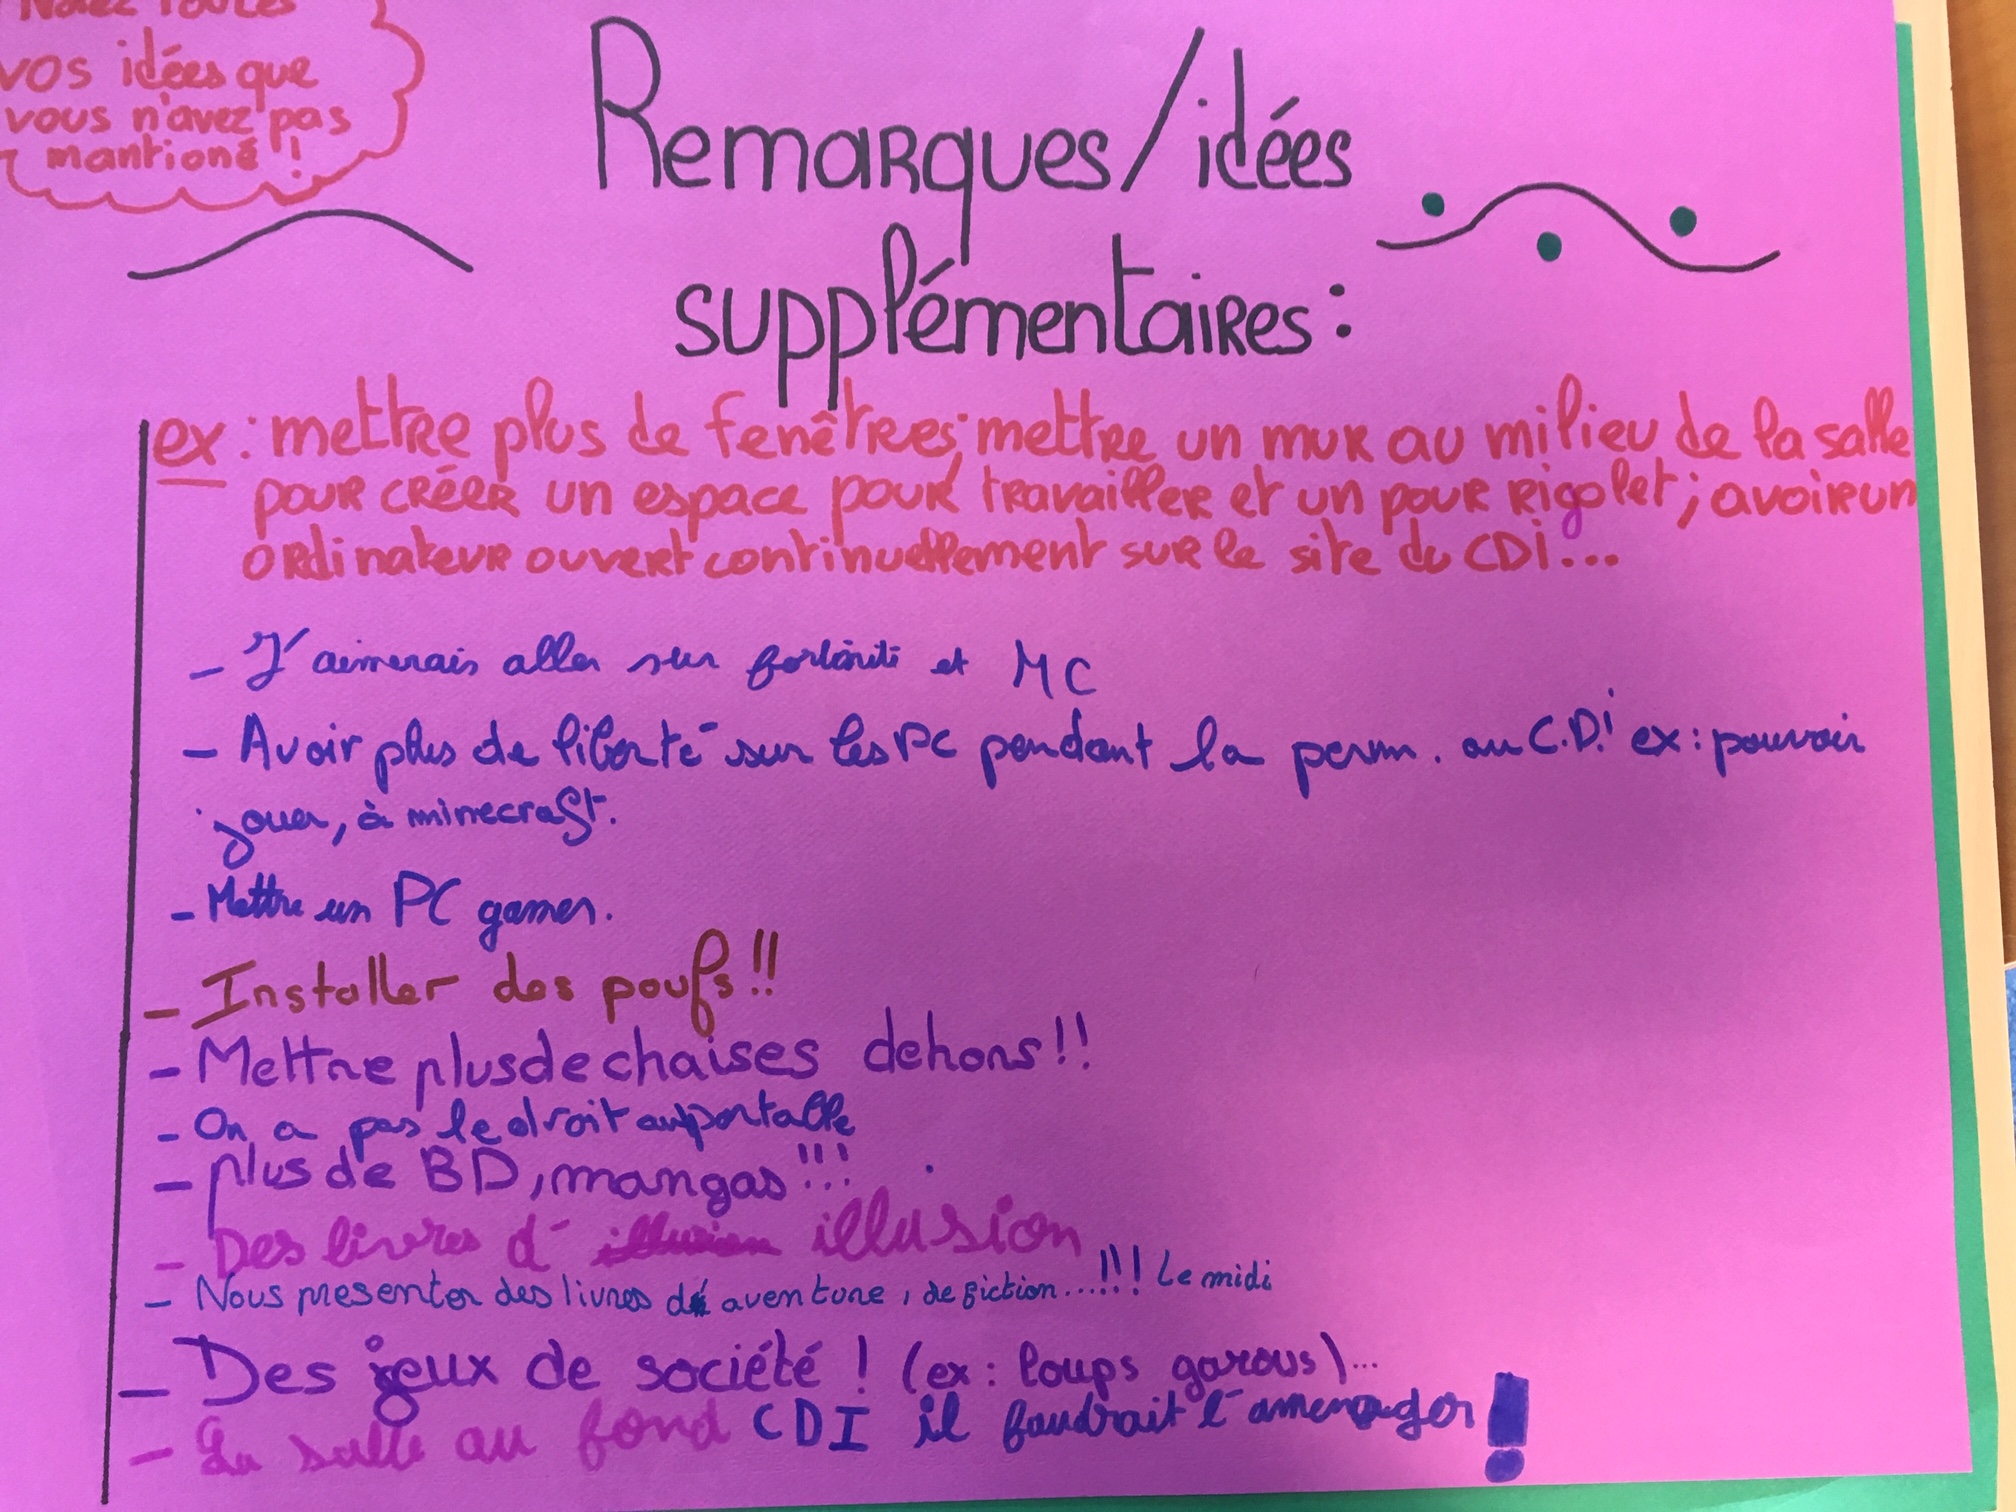 Notez toutes
vos idées que
vous n'avez pas
mantioné !
Remarques/idées
supplémentaires :
ex : mettre plus de fenêtres; mettre un mur au milieu de la salle
pour créer un espace pour travailler et un pour rigolet ; avoir un
ordinateur ouvert continuellement sur le site du CDI...
- J'aimerais aller sur fortinite et MC
- Avoir plus de liberté sur les PC pendant la perm. au C.D.i ex : pouvoir
jouer, à minecraft.
- Mettre un PC gamer.
- Installer des poufs !!
- Mettre plus de chaises dehors !!
- On a pas le droit au portable
- plus de BD, mangas !!!
- Des livres d' illusion
- Nous presenter des livres d' aventure, de fiction...!!! Le midi
- Des jeux de société ! (ex : loups garous)...
- La salle au fond CDI il faudrait l'amenager !